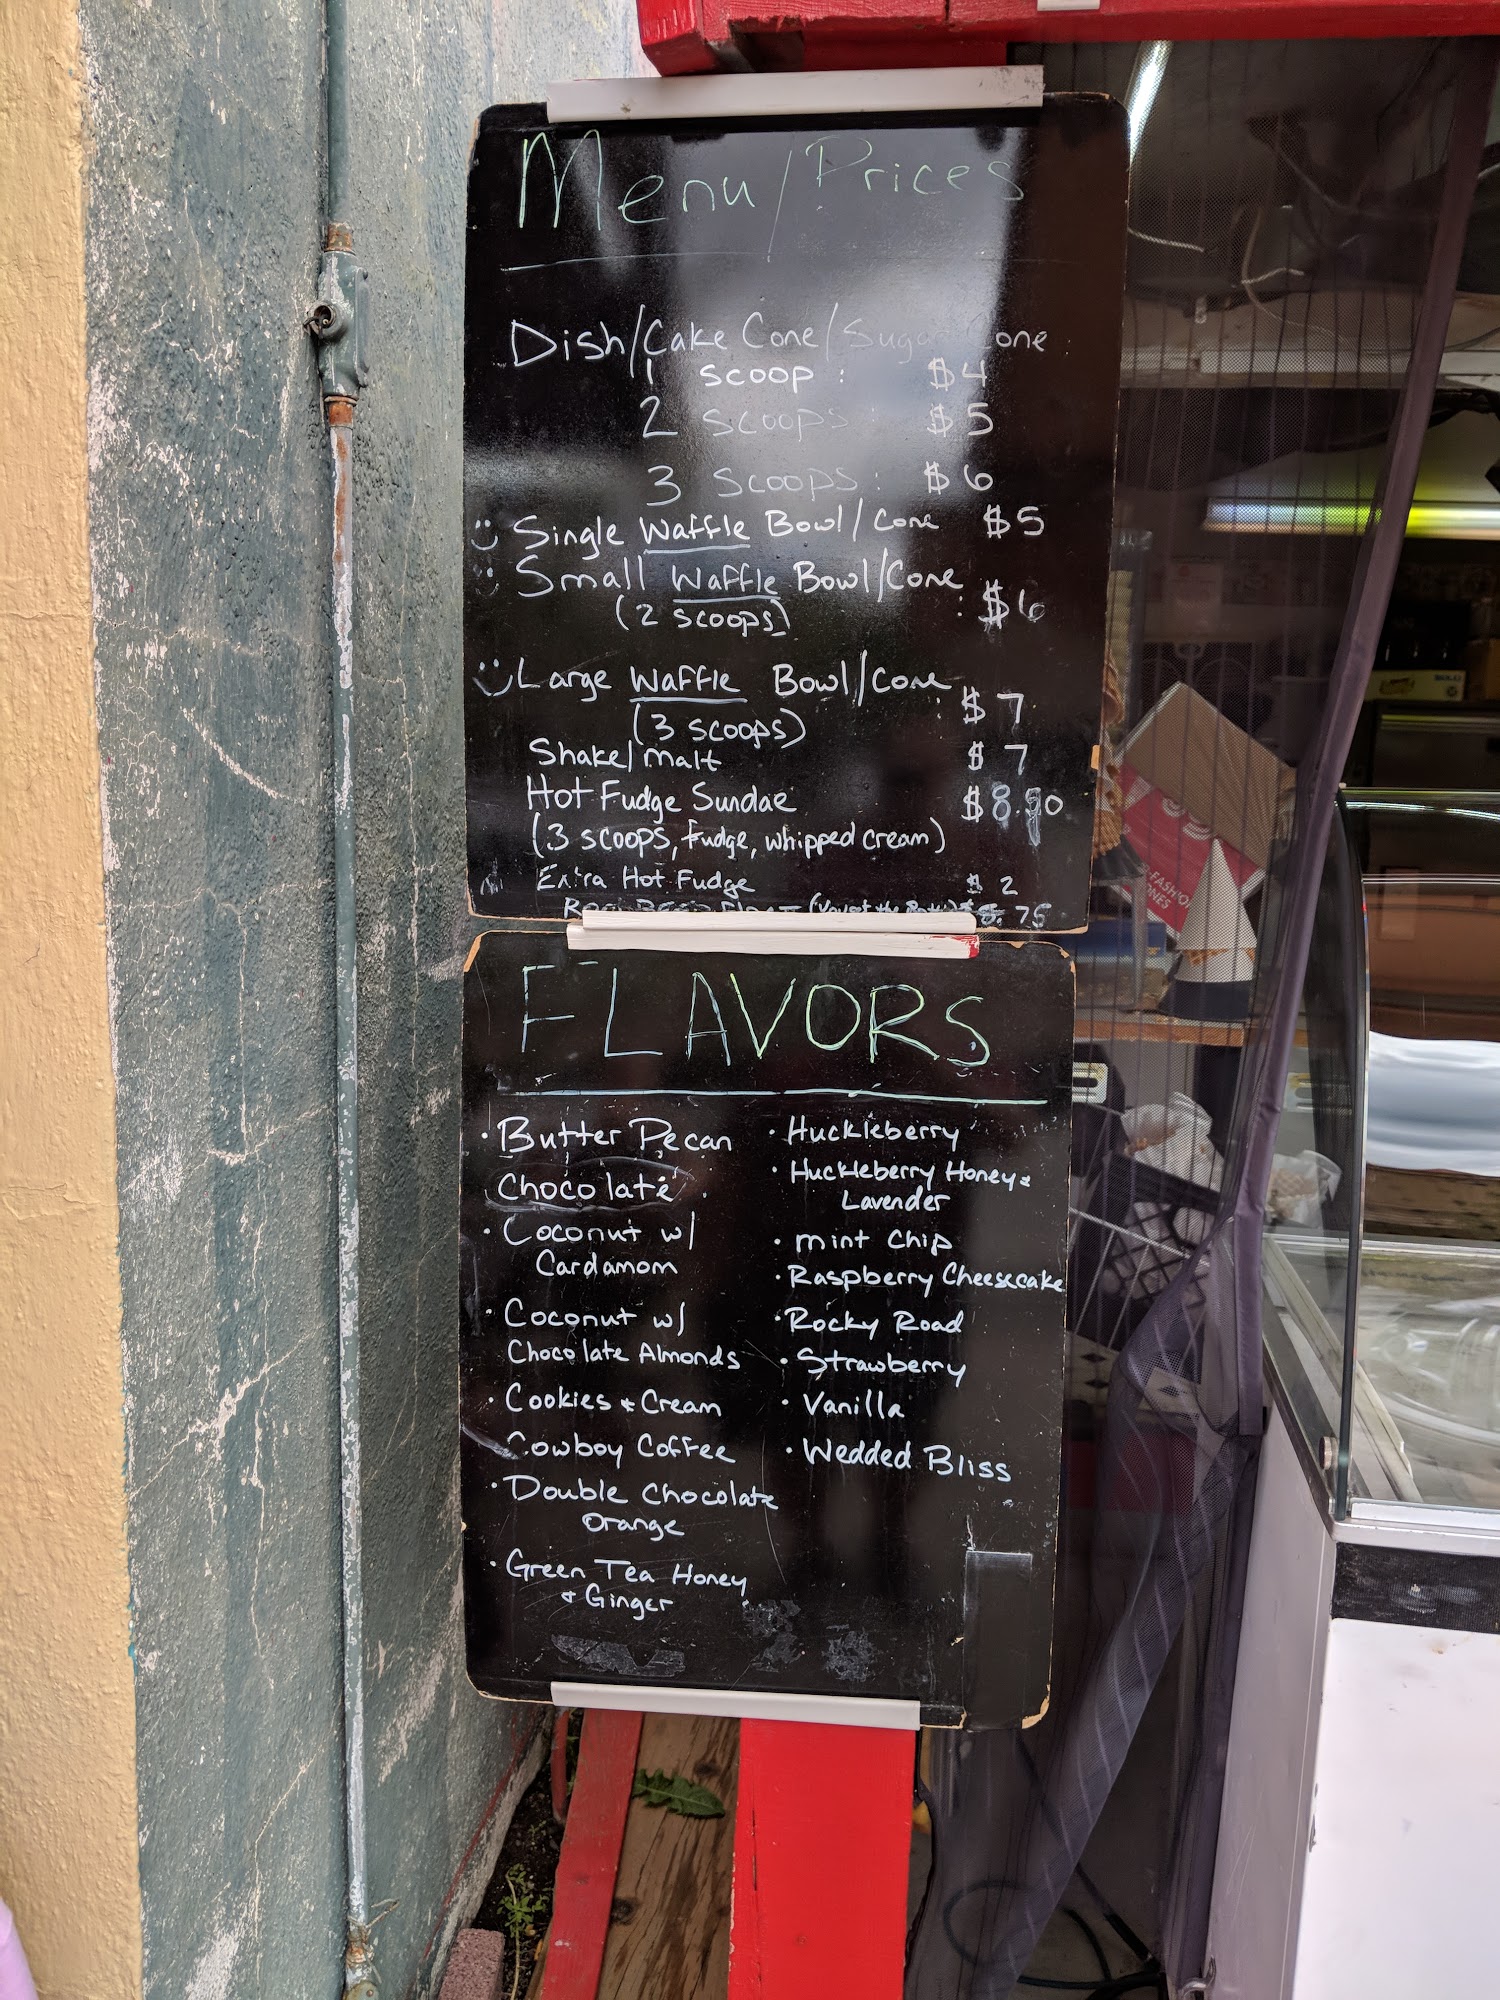 Menu/Prices
Dish/Cake Cone/Sugar Cone
1 scoop: $4
2 scoops: $5
3 scoops: $6
Single Waffle Bowl/Cone $5
Small Waffle Bowl/Cone
(2 scoops) : $6
Large Waffle Bowl/Cone
(3 scoops) : $7
Shake/malt $7
Hot Fudge Sundae $8.50
(3 scoops, fudge, whipped cream)
Extra Hot Fudge $2
75
FLAVORS
• Butter Pecan
Chocolate
• Coconut w/
Cardamom
• Coconut w/
Chocolate Almonds
• Cookies & Cream
Cowboy Coffee
• Double Chocolate
Orange
• Green Tea Honey
& Ginger
• Huckleberry
• Huckleberry Honey &
Lavender
• mint chip
• Raspberry Cheesecake
• Rocky Road
• Strawberry
• Vanilla
• Wedded Bliss